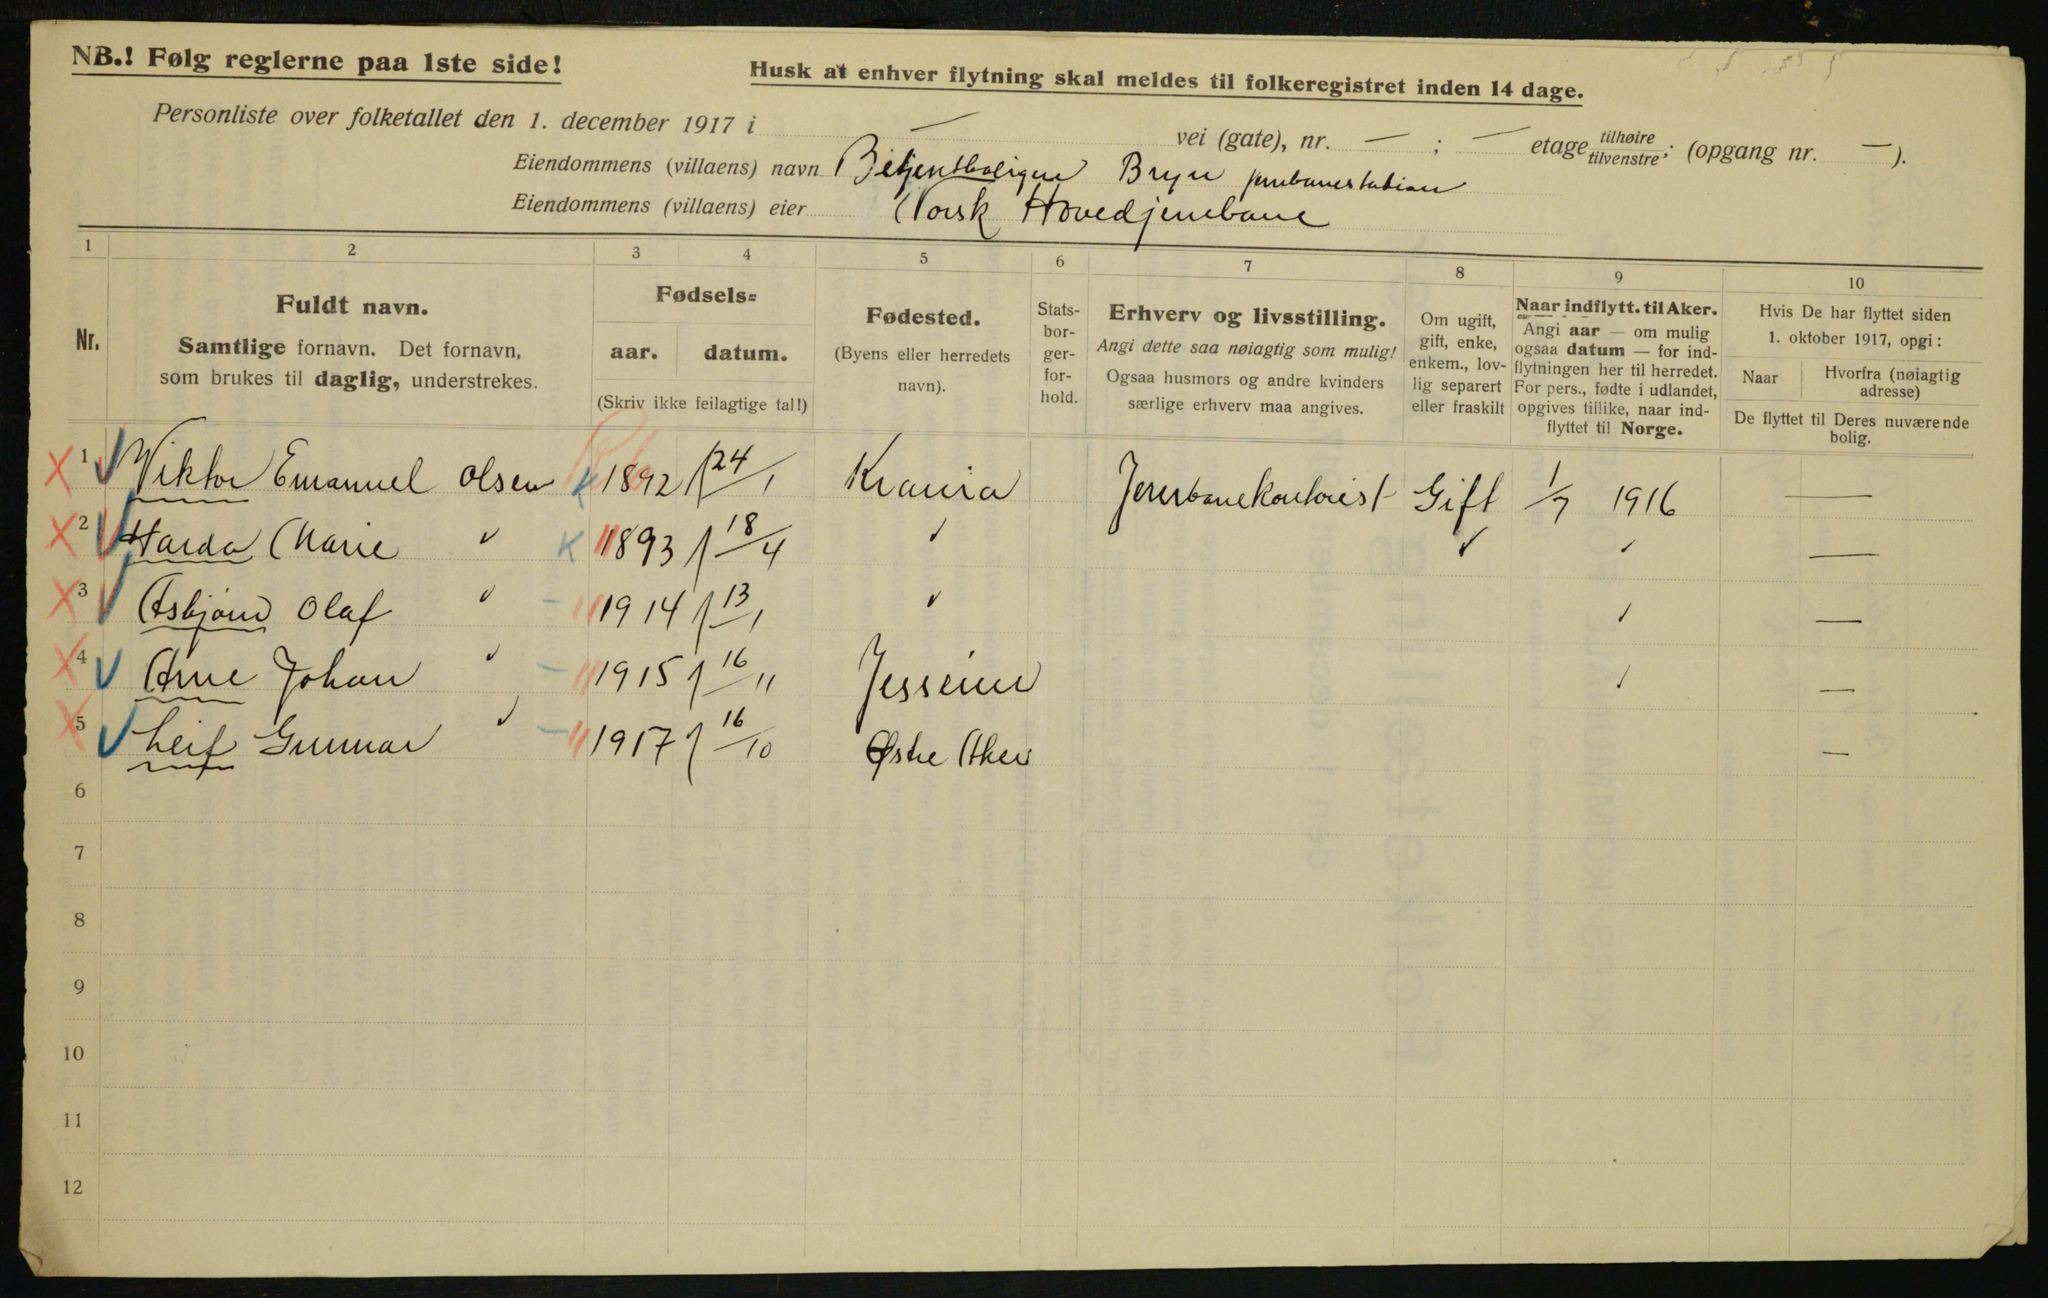 NB.! Følg reglerne paa 1ste side!
Husk at enhver flytning skal meldes til folkeregistret inden 14 dage.
Personliste over folketallet den 1. december 1917 i — vei (gate), nr. — ; — etage tilhøire/tilvenstre; (opgang nr. —).
Eiendommens (villaens) navn Betjentboligen Bryn jernbanestation
Eiendommens (villaens) eier Norsk Hovedjernbane
1 2 3 4 5 6 7 8 9 10
Nr.
Fuldt navn.
Samtlige fornavn. Det fornavn,
som brukes til daglig, understrekes.
Fødsels=
aar. datum.
(Skriv ikke feilagtige tal!)
Fødested.
(Byens eller herredets
navn).
Stats-
bor-
ger-
for-
hold.
Erhverv og livsstilling.
Angi dette saa nøiagtig som mulig!
Ogsaa husmors og andre kvinders
særlige erhverv maa angives.
Om ugift,
gift, enke,
enkem., lov-
lig separert
eller fraskilt
Naar indflytt. til Aker.
Angi aar — om mulig
ogsaa datum — for ind-
flytningen her til herredet.
For pers., fødte i utlandet,
opgives tillike, naar ind-
flyttet til Norge.
Hvis De har flyttet siden
1. oktober 1917, opgi:
Naar Hvorfra (nøiagtig
adresse)
De flyttet til Deres nuværende
bolig.
1 Viktor Emanuel Olsen K 1892 24/1 Krania Jernbanekontorist Gift 1/7 1916 —
2 Harda Marie " K 1893 18/4 " " " —
3 Asbjørn Olaf " 1914 13/1 " " —
4 Arne Johan " 1915 16/11 Jesseim " —
5 Leif Gunnar " 1917 16/10 Østre Aker —
6
7
8
9
10
11
12